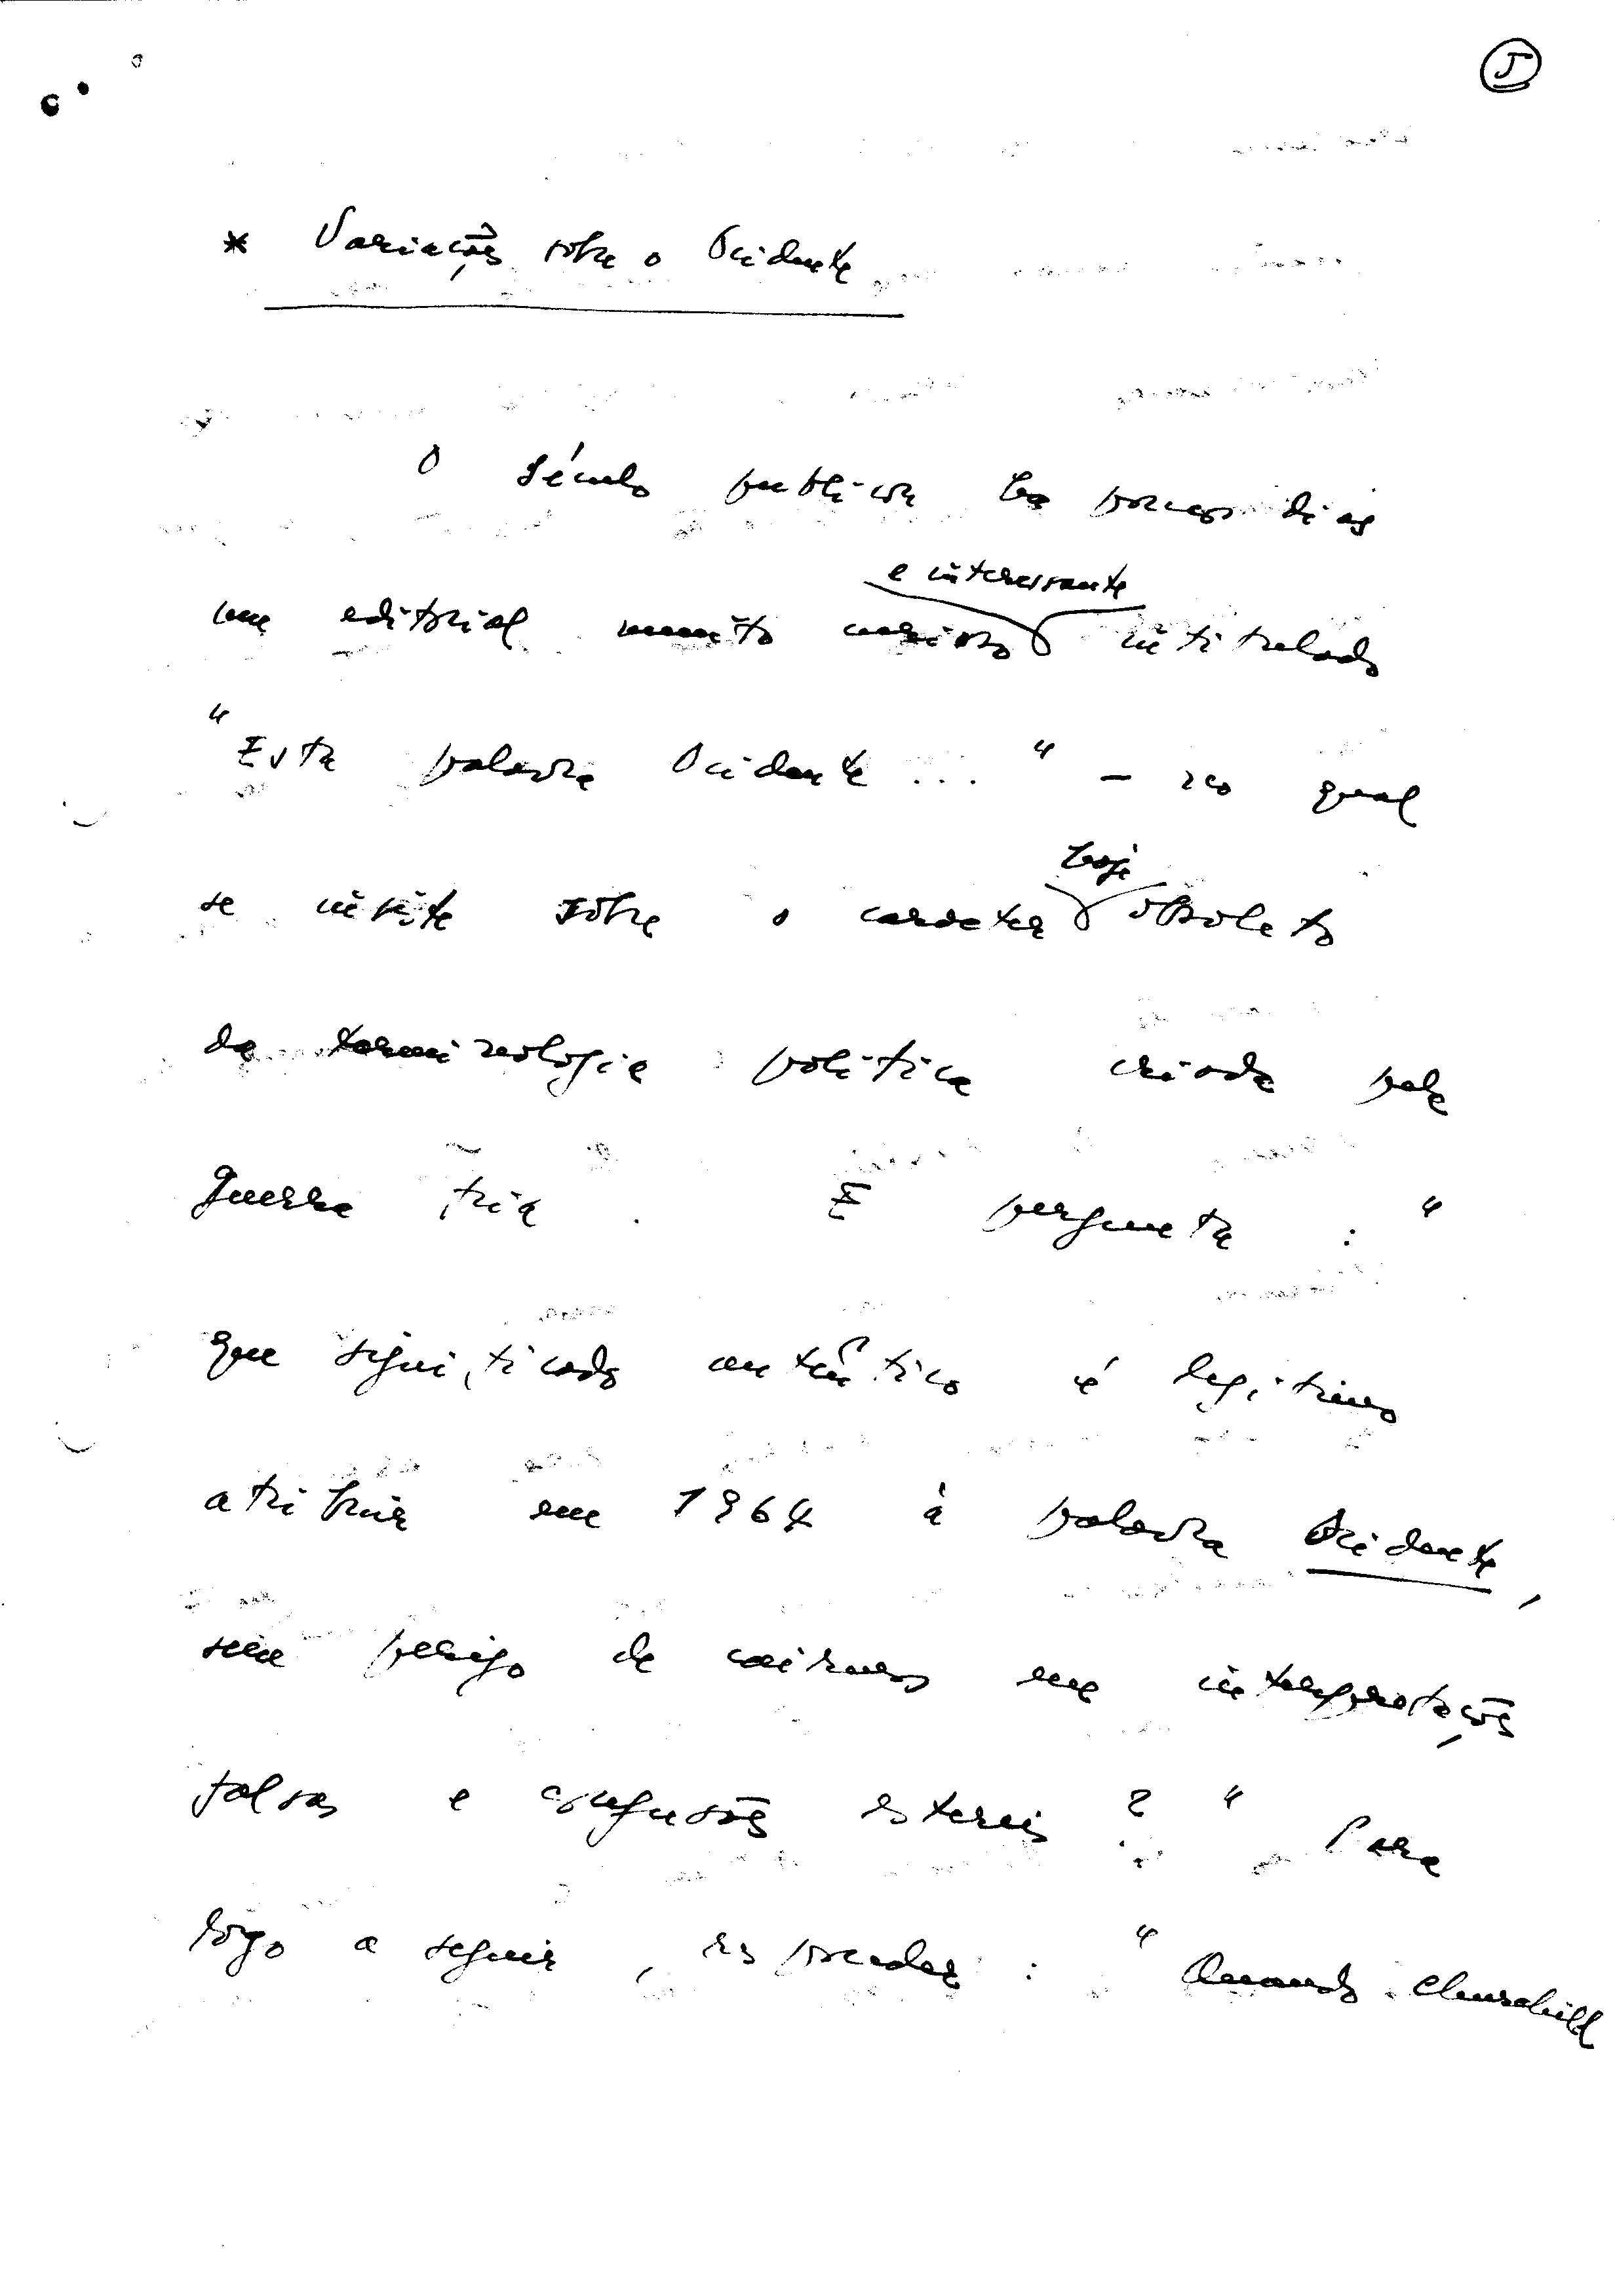 5
* Variações sobre o Ocidente
O Século publicou há poucos dias
e interessante
um editorial muito curioso intitulado
"Esta palavra Ocidente ..." — no qual
hoje
se insiste sobre o carácter obsoleto
da terminologia política criada pela
guerra fria. E pergunta: "
que significado autêntico é legítimo
atribuir em 1964 à palavra Ocidente,
sem perigo de cairmos em interpretações
falsas e confusões estereis?" Para
logo a seguir, responder: "Quando Churchill